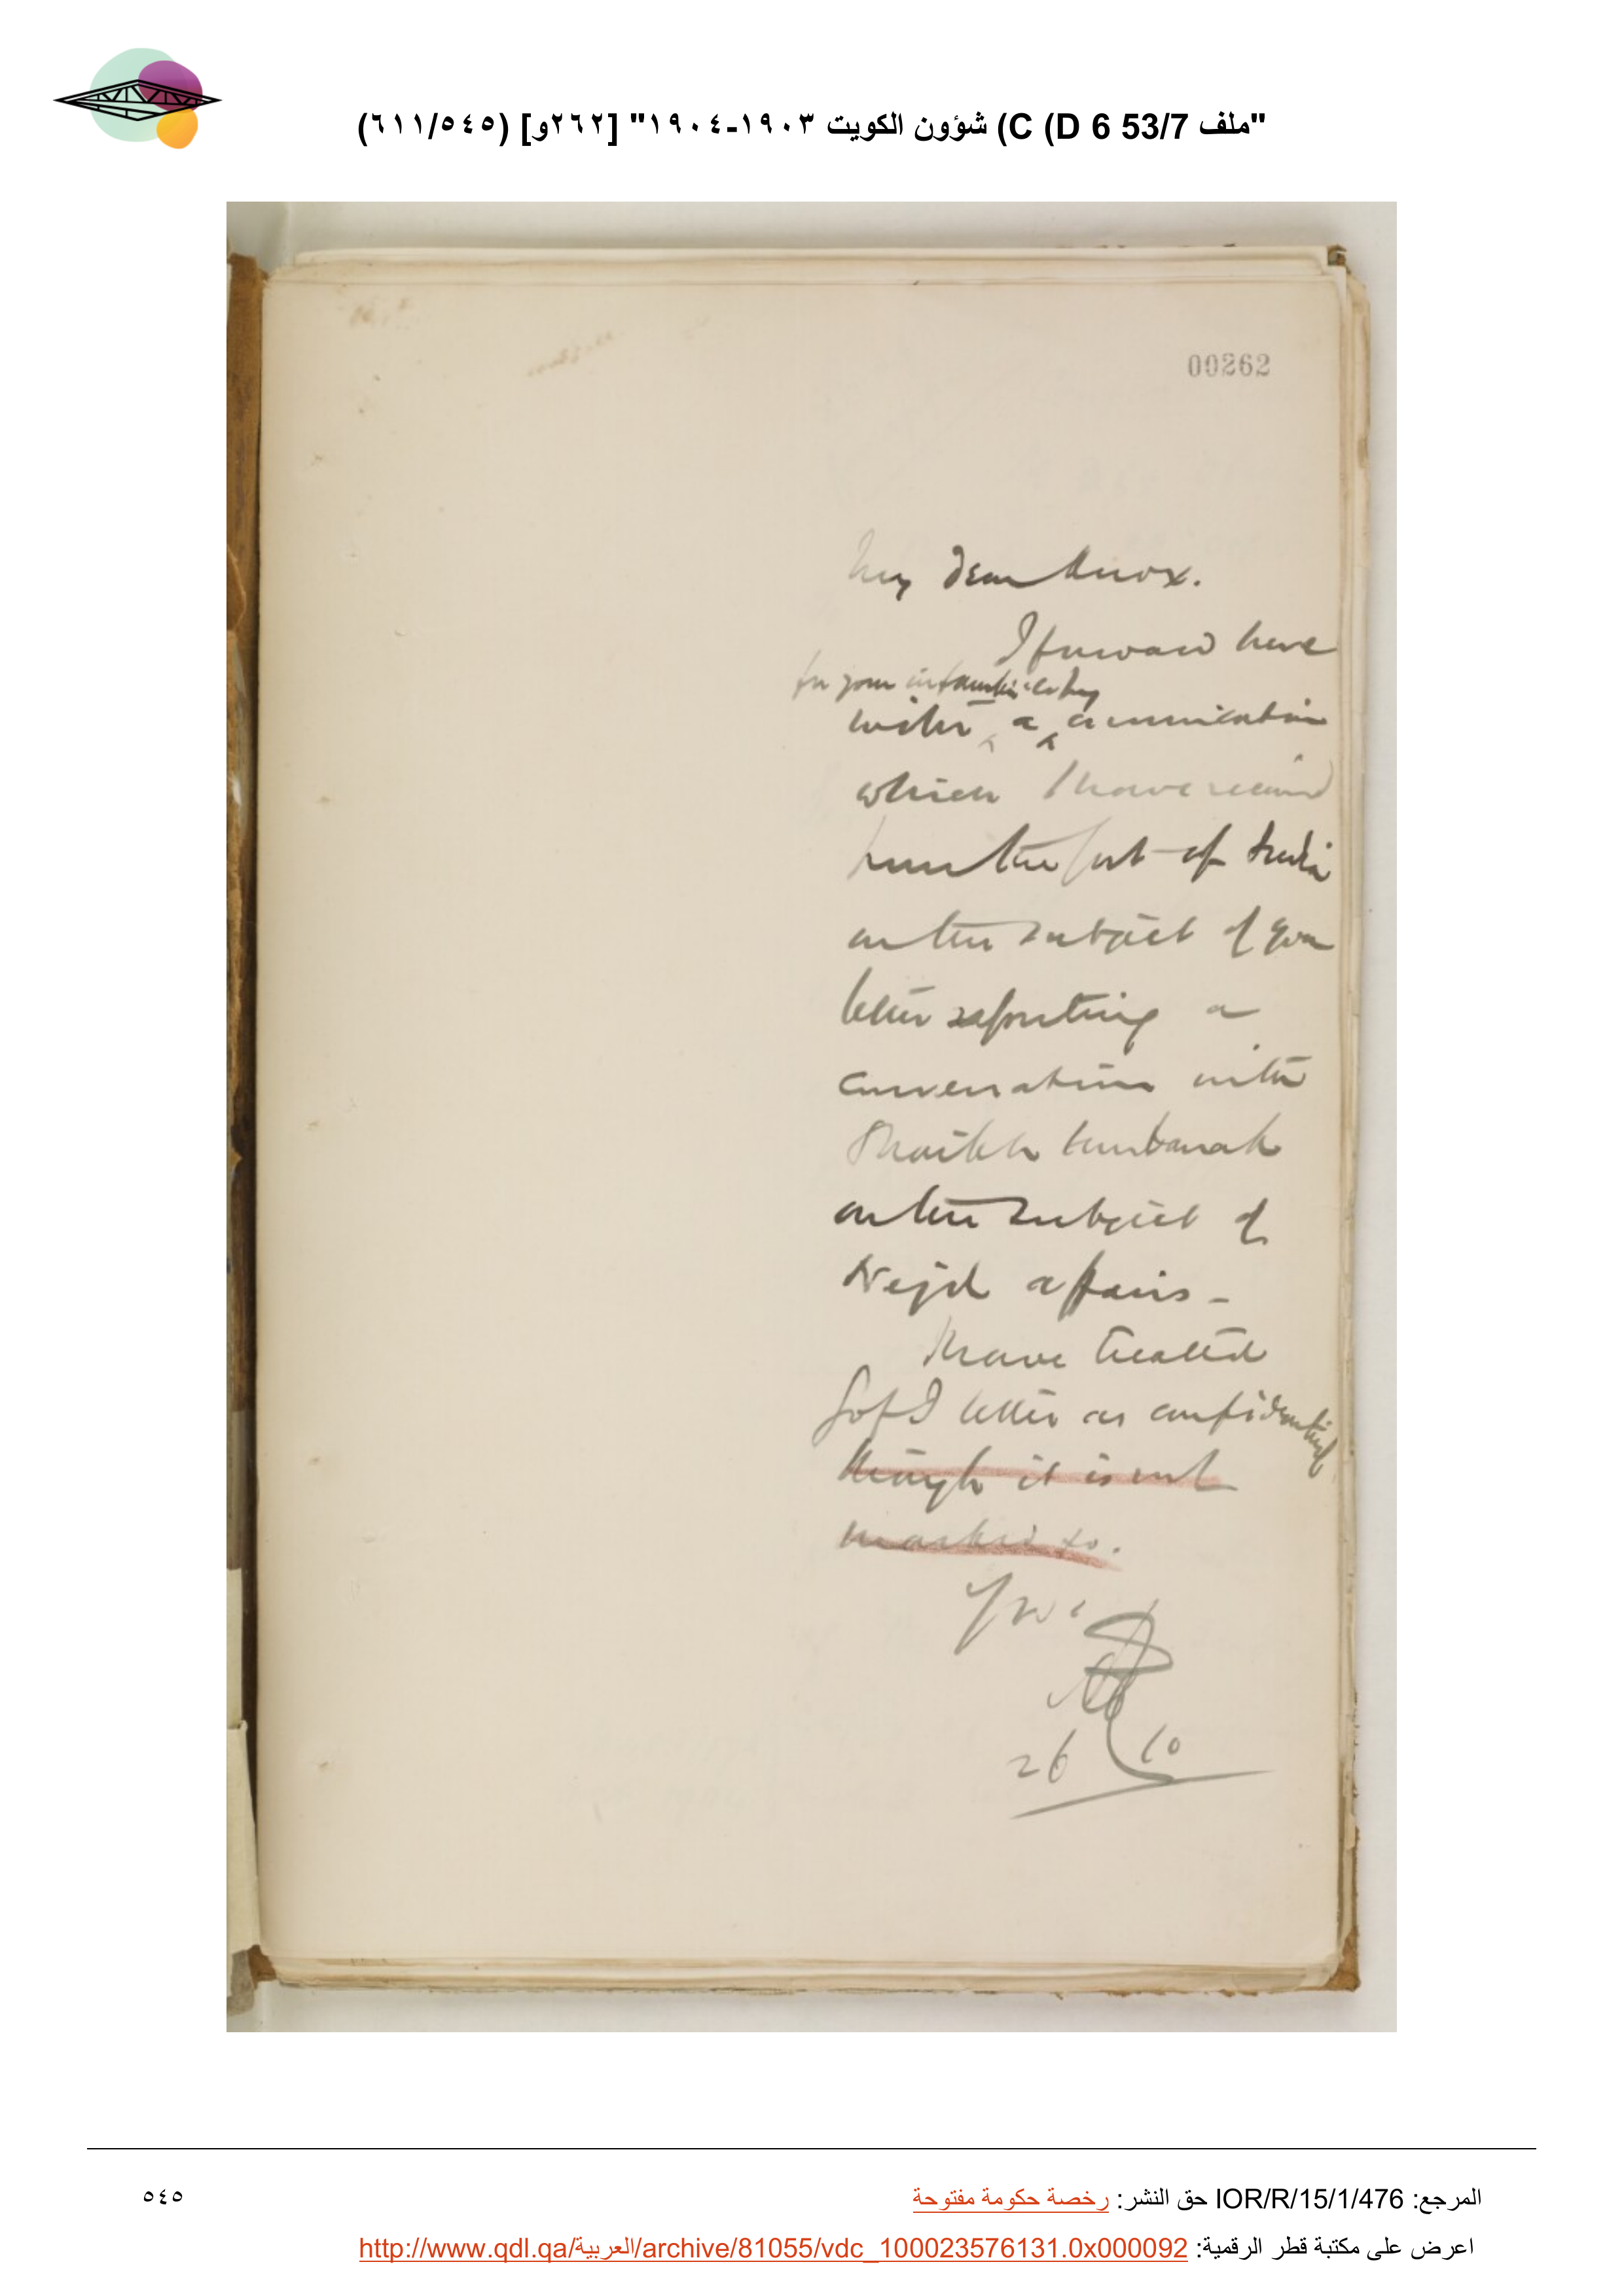 "ملف 53/7 D 6) C) شؤون الكويت ١٩٠٣-١٩٠٤" [٢٦٢و] (٦١١/٥٤٥)
00262
My dear Knox.
I forward here
for your information copy
with a communication
which I have received
from the Govt of India
on the subject of your
letter reporting a
conversation with
Shaikh Mubarak
on the subject of
Nejd affairs -
I have treated
G of I letter as confidential
though it is not
marked so.
Yrs
26 10
المرجع: IOR/R/15/1/476 حق النشر: رخصة حكومة مفتوحة
٥٤٥
اعرض على مكتبة قطر الرقمية: http://www.qdl.qa/العربية/archive/81055/vdc_100023576131.0x000092